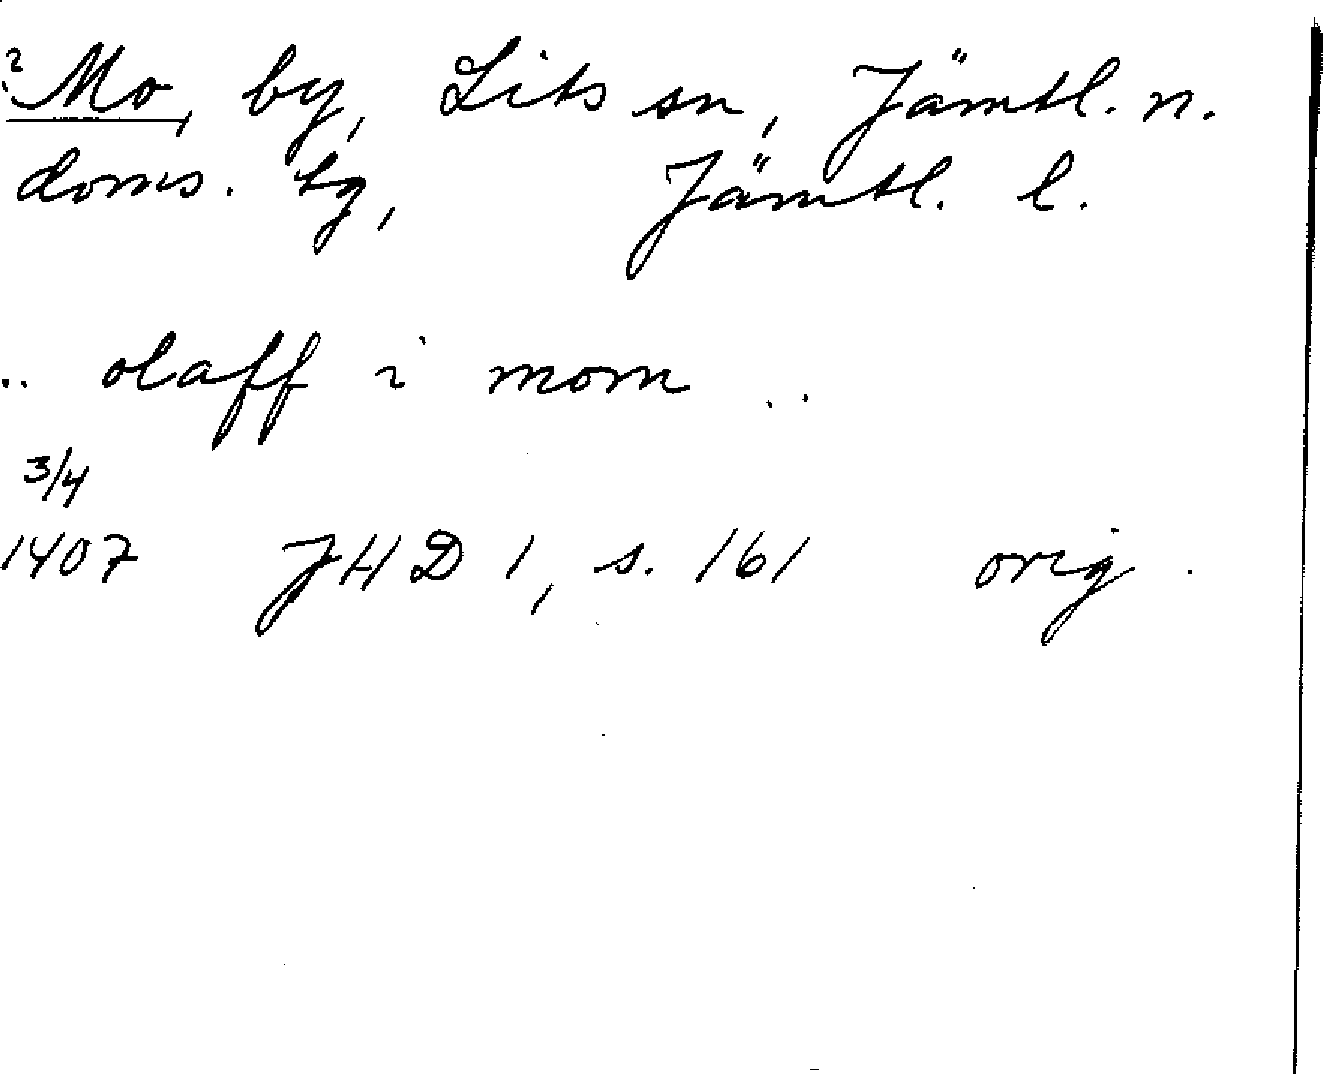 ? Mo, by, Lits sn, Jämtl. n.
doms. tg, Jämtl. l.
.. olaff i mom ..
3/4
1407 JHD 1, s. 161 orig.